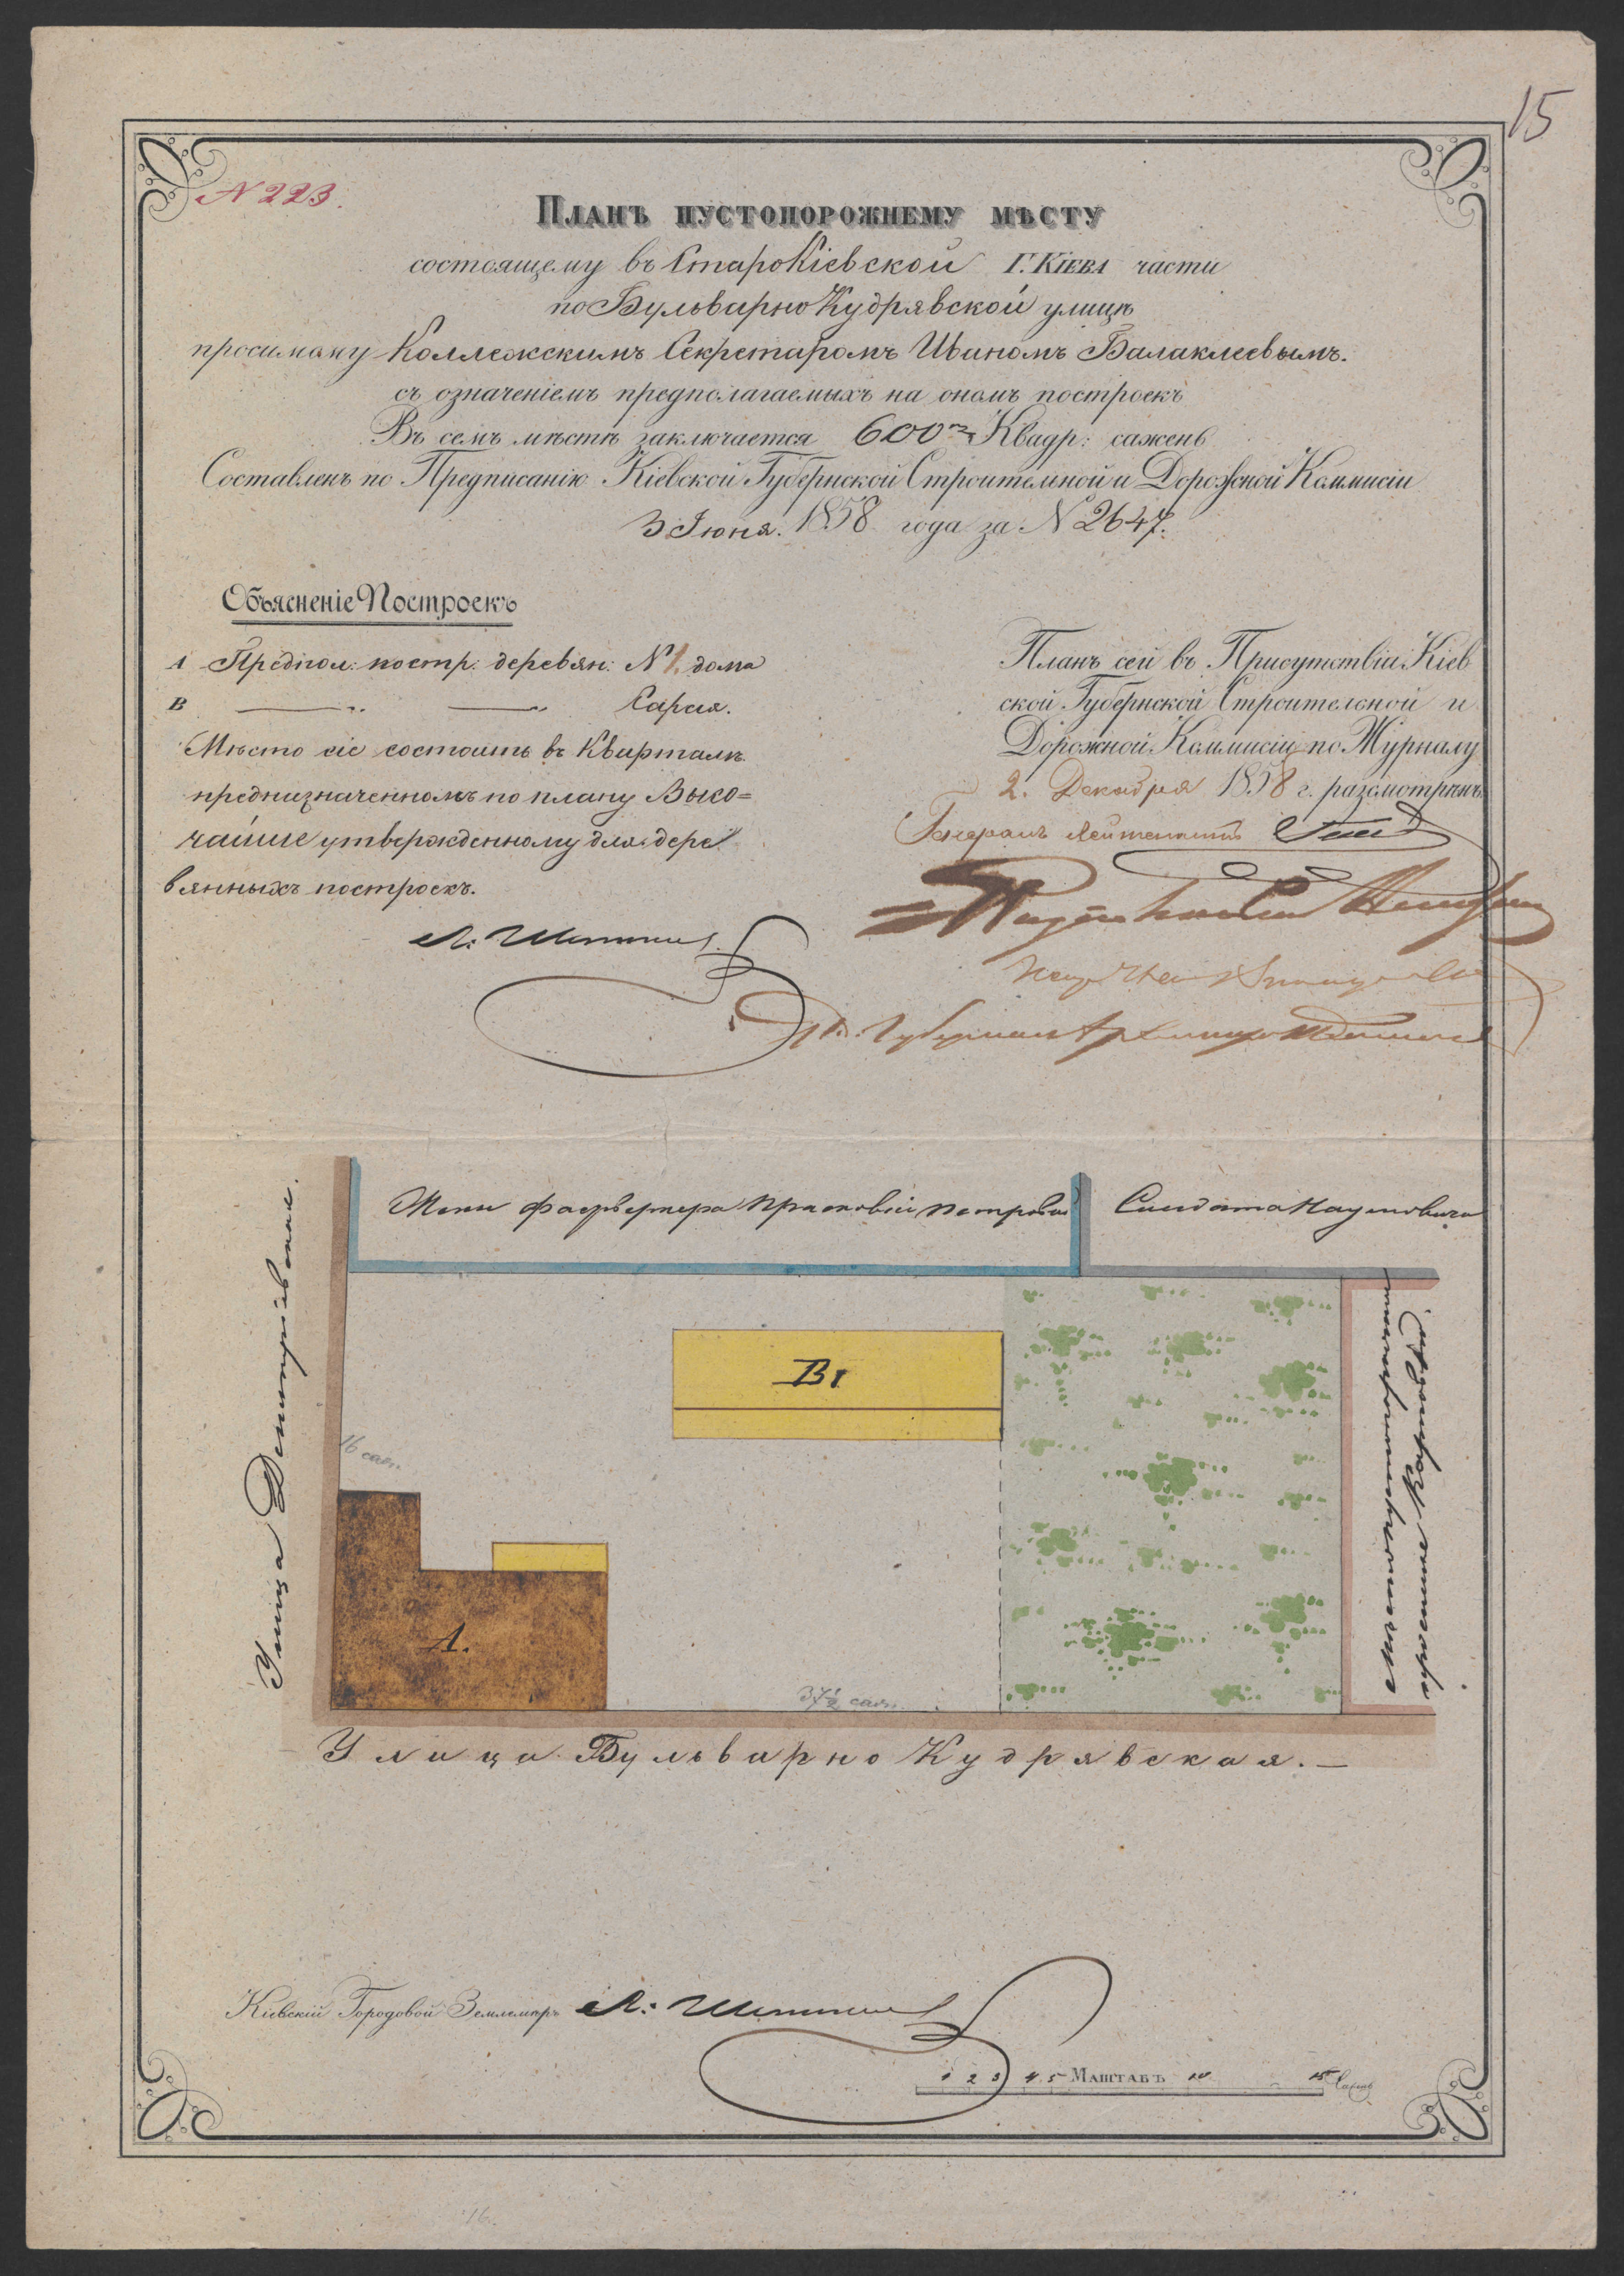 15
N 223.
Планъ пустопорожнему мѣсту
состоящему въ СтароКіевской Г. Кіева части
по БульварноКудрявской улицѣ
просимому Коллежскимъ Секретаромъ Иваномъ Балаклеевымъ.
съ означеніемъ предполагаемыхъ на ономъ построекъ
Въ семъ мѣстѣ заключается 600 Квадр: сажень
Составленъ по Предписанію Кіевской Губернской Строительной и Дорожной Коммисіи
3 Іюня. 1858 года за N 2647.
Объясненіе Построекъ
А Предпол: постр: деревян: N 1. дома
В —— „ —— „ Сарая.
Мѣсто сіе состоитъ въ Кварталѣ
предназначенномъ по плану Высо=
чайше утвержденному для дере
вянныхъ построекъ.
Планъ сей въ Присутствіи Кіев
ской Губернской Строительной и
Дорожной Коммисіи по Журналу
2. Декабря 1858 г. разсмотрѣнъ
Генералъ Лейтенантъ
Губернскій Архитекторъ
Жены фаерверкера Прасковіи Петровой
Солдата Наумовича
Улица Дмитріевская.
В1
16 саж.
А.
37½ саж.
Улица БульварноКудрявская. —
Кіевскій Городовой Землемѣръ
1 2 3 4 5 Маштабъ 10 15 Саженъ
16.